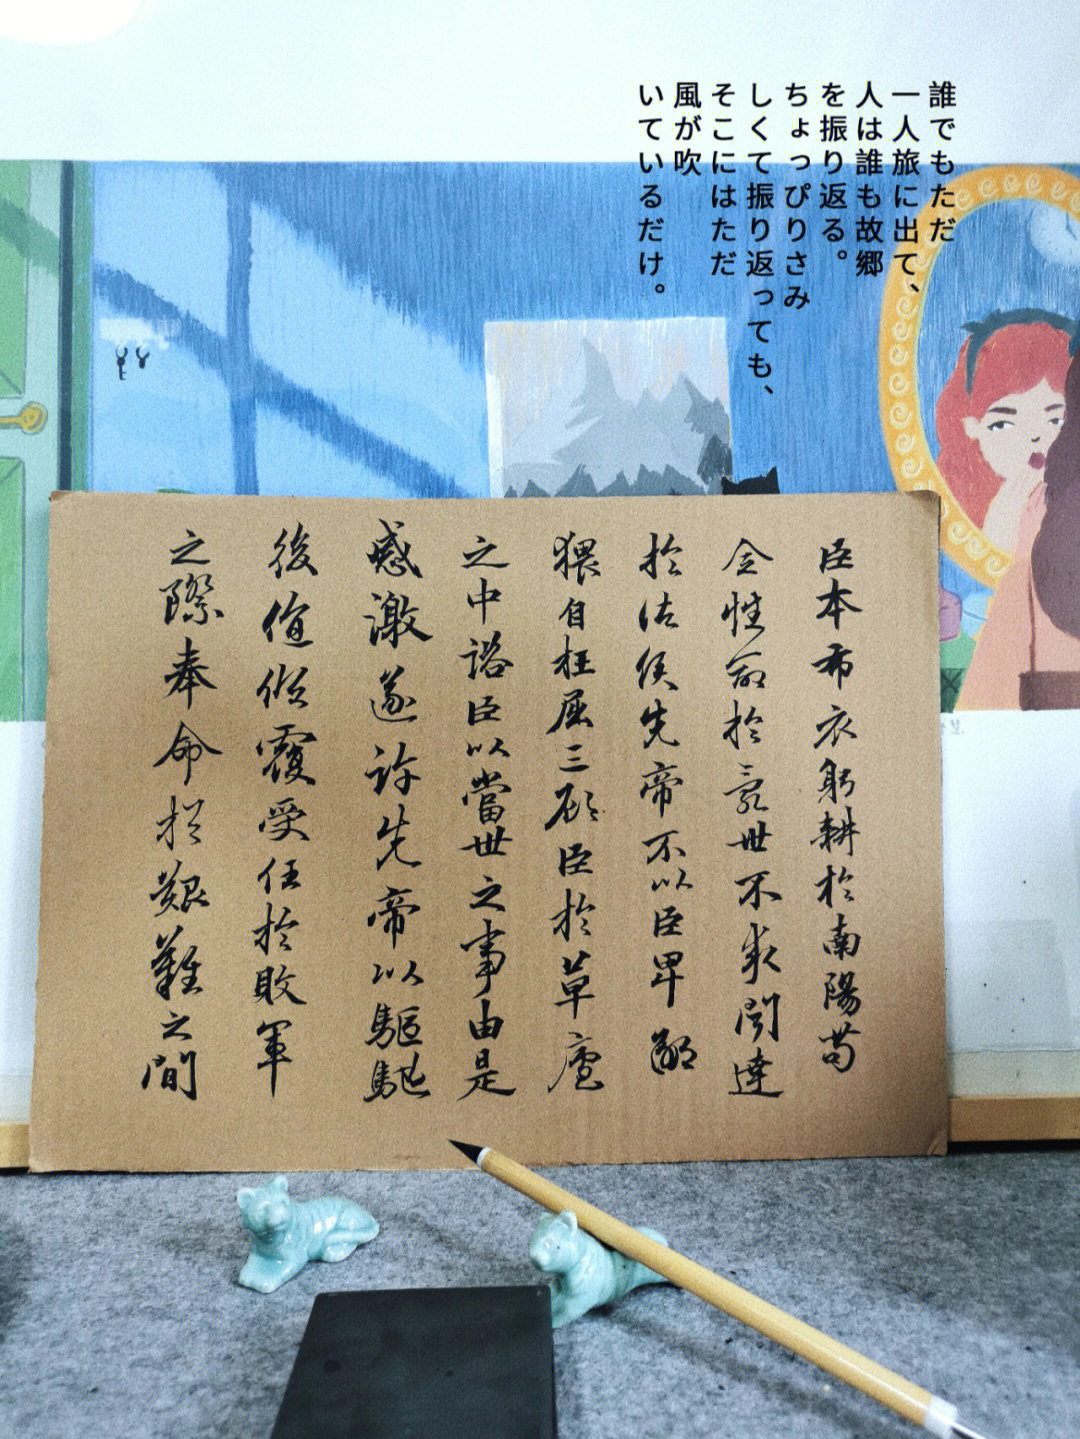 誰でもただ
一人旅に出て、
人は誰も故郷
を振り返る。
ちょっぴりさみ
しくて振り返っても、
そこにはただ
風が吹
いているだけ。
臣本布衣躬耕於南陽苟
全性命於亂世不求聞達
於諸侯先帝不以臣卑鄙
猥自枉屈三顧臣於草廬
之中諮臣以當世之事由是
感激遂許先帝以驅馳
後值傾覆受任於敗軍
之際奉命於艱難之間